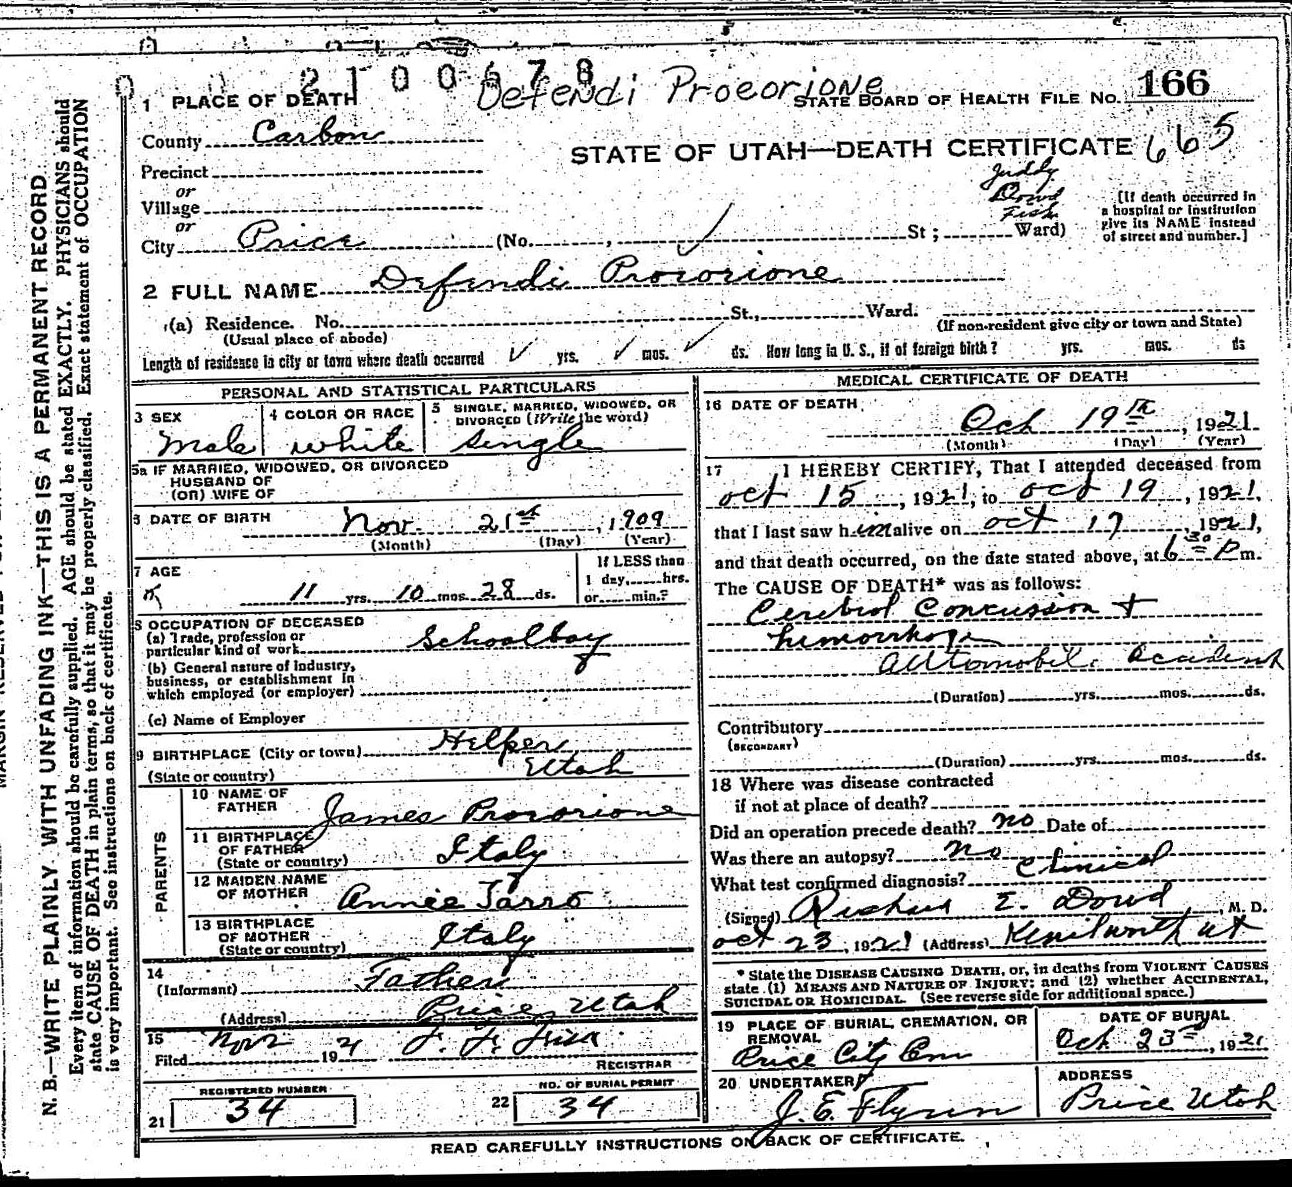 2100678
Defendi Procorione
STATE BOARD OF HEALTH FILE NO. 166
1 PLACE OF DEATH
County Carbon
STATE OF UTAH—DEATH CERTIFICATE 665
Precinct
or
Village
or
City Price (No. , St; Ward)
Juddy
Dowd
Fish
[If death occurred in
a hospital or institution
give its NAME instead
of street and number.]
2 FULL NAME Defendi Procorione
(a) Residence. No. St., Ward.
(Usual place of abode)
(If non-resident give city or town and State)
Length of residence in city or town where death occurred ✓ yrs. ✓ mos. ✓ ds. How long in U. S., if of foreign birth? yrs. mos. ds
PERSONAL AND STATISTICAL PARTICULARS
3 SEX
Male
4 COLOR OR RACE
white
5 SINGLE, MARRIED, WIDOWED, OR
DIVORCED (Write the word)
single
5a IF MARRIED, WIDOWED, OR DIVORCED
HUSBAND OF
(OR) WIFE OF
6 DATE OF BIRTH Nov. 21st, 1909
(Month) (Day) (Year)
7 AGE
11 yrs. 10 mos. 28 ds.
If LESS than
1 day, hrs.
or min.?
8 OCCUPATION OF DECEASED
(a) Trade, profession or
particular kind of work Schoolboy
(b) General nature of Industry,
business, or establishment in
which employed (or employer)
(c) Name of Employer
9 BIRTHPLACE (City or town) Helper,
(State or country) Utah
PARENTS
10 NAME OF
FATHER James Procorione
11 BIRTHPLACE
OF FATHER
(State or country) Italy
12 MAIDEN NAME
OF MOTHER Annie Tarro
13 BIRTHPLACE
OF MOTHER
(State or country) Italy
14
(Informant) Father
(Address) Price, Utah
15
Filed Nov 2 1921
REGISTRAR
REGISTERED NUMBER
21 34
NO. OF BURIAL PERMIT
22 34
MEDICAL CERTIFICATE OF DEATH
16 DATE OF DEATH
Oct 19th, 1921
(Month) (Day) (Year)
17 I HEREBY CERTIFY, That I attended deceased from
oct 15, 1921, to oct 19, 1921,
that I last saw him alive on oct 17, 1921,
and that death occurred, on the date stated above, at 6 30 P m.
The CAUSE OF DEATH* was as follows:
Cerebral Concussion +
hemorrhage
automobile accident
(Duration) yrs. mos. ds.
Contributory
(SECONDARY)
(Duration) yrs. mos. ds.
18 Where was disease contracted
if not at place of death?
Did an operation precede death? no Date of
Was there an autopsy? no
What test confirmed diagnosis? Clinical
(Signed) Richard E. Dowd, M. D.
oct 23, 1921 (Address) Kenilworth ut
* State the DISEASE CAUSING DEATH, or, in deaths from VIOLENT CAUSES
state (1) MEANS AND NATURE OF INJURY; and (2) whether ACCIDENTAL,
SUICIDAL OR HOMICIDAL. (See reverse side for additional space.)
19 PLACE OF BURIAL, CREMATION, OR
REMOVAL
Price City Cem
DATE OF BURIAL
Oct 23rd, 1921
20 UNDERTAKER
J. E. Flynn
ADDRESS
Price Utah
READ CAREFULLY INSTRUCTIONS ON BACK OF CERTIFICATE.
N. B.—WRITE PLAINLY, WITH UNFADING INK—THIS IS A PERMANENT RECORD
Every item of information should be carefully supplied. AGE should be stated EXACTLY. PHYSICIANS should
state CAUSE OF DEATH in plain terms, so that it may be properly classified. Exact statement of OCCUPATION
is very important. See instructions on back of certificate.